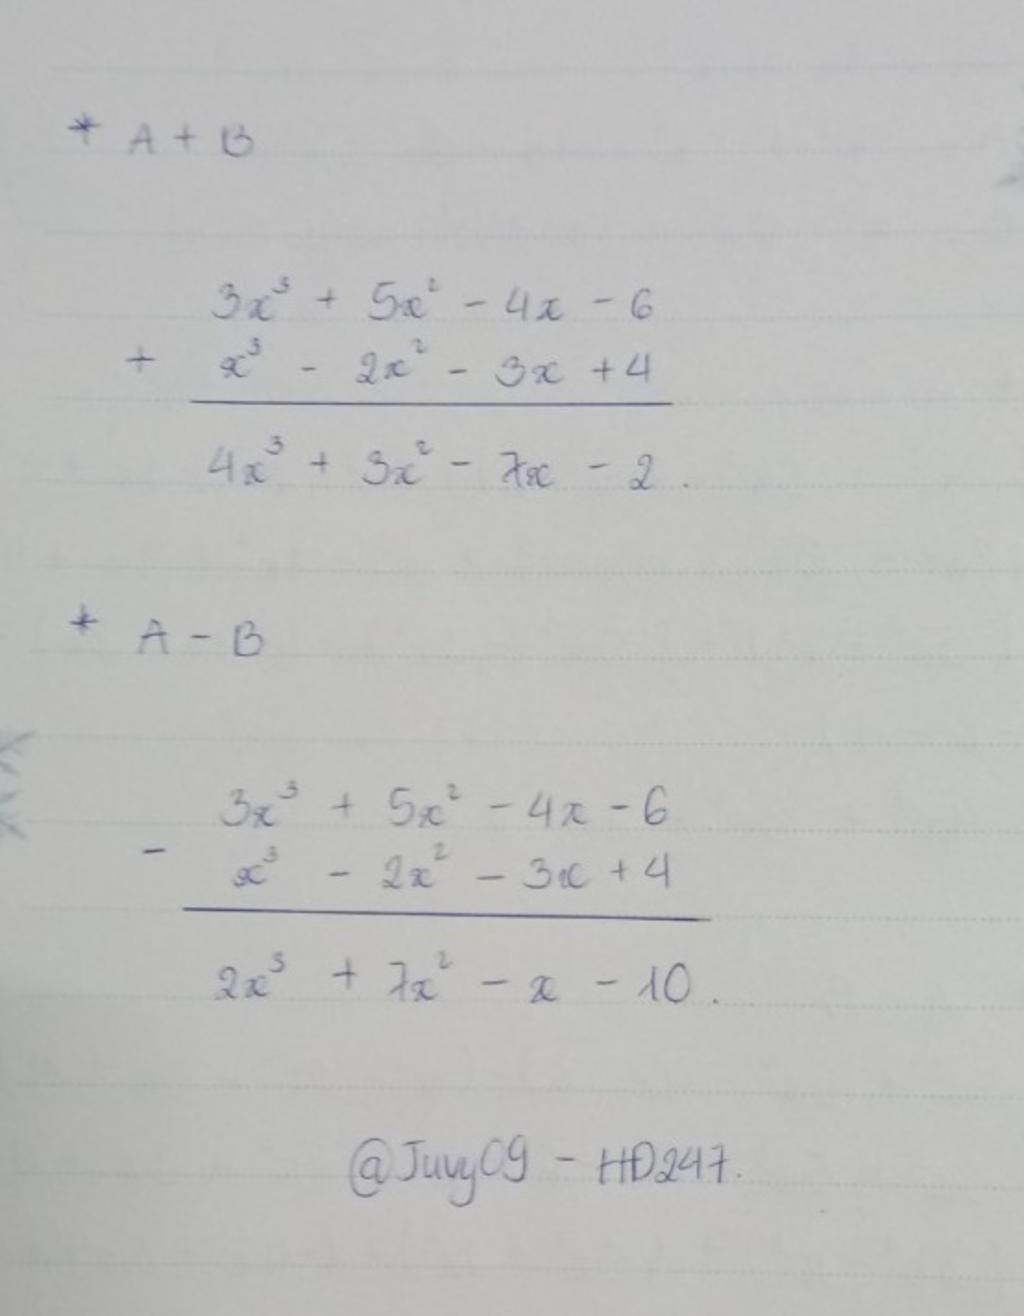 * A + B
3x³ + 5x² - 4x - 6
+ x³ - 2x² - 3x + 4
4x³ + 3x² - 7x - 2.
* A - B
3x³ + 5x² - 4x - 6
- x³ - 2x² - 3x + 4
2x³ + 7x² - x - 10.
@Juvy09 - HĐ247.